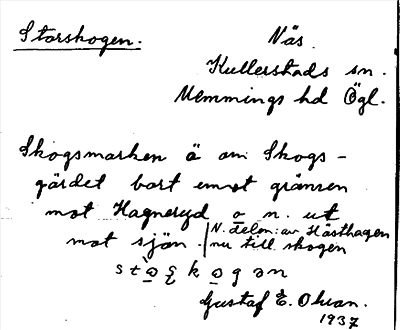 Storskogen.
Näs.
Kullerstads sn.
Memmings hd Ögl.
Skogsmarken ä om Skogs-
gärdet bort emot gränsen
mot Hagneryd o n. ut
mot sjön. N. delen: av Hästhagen
nu till skogen
Gustaf E. Ohson.
1937